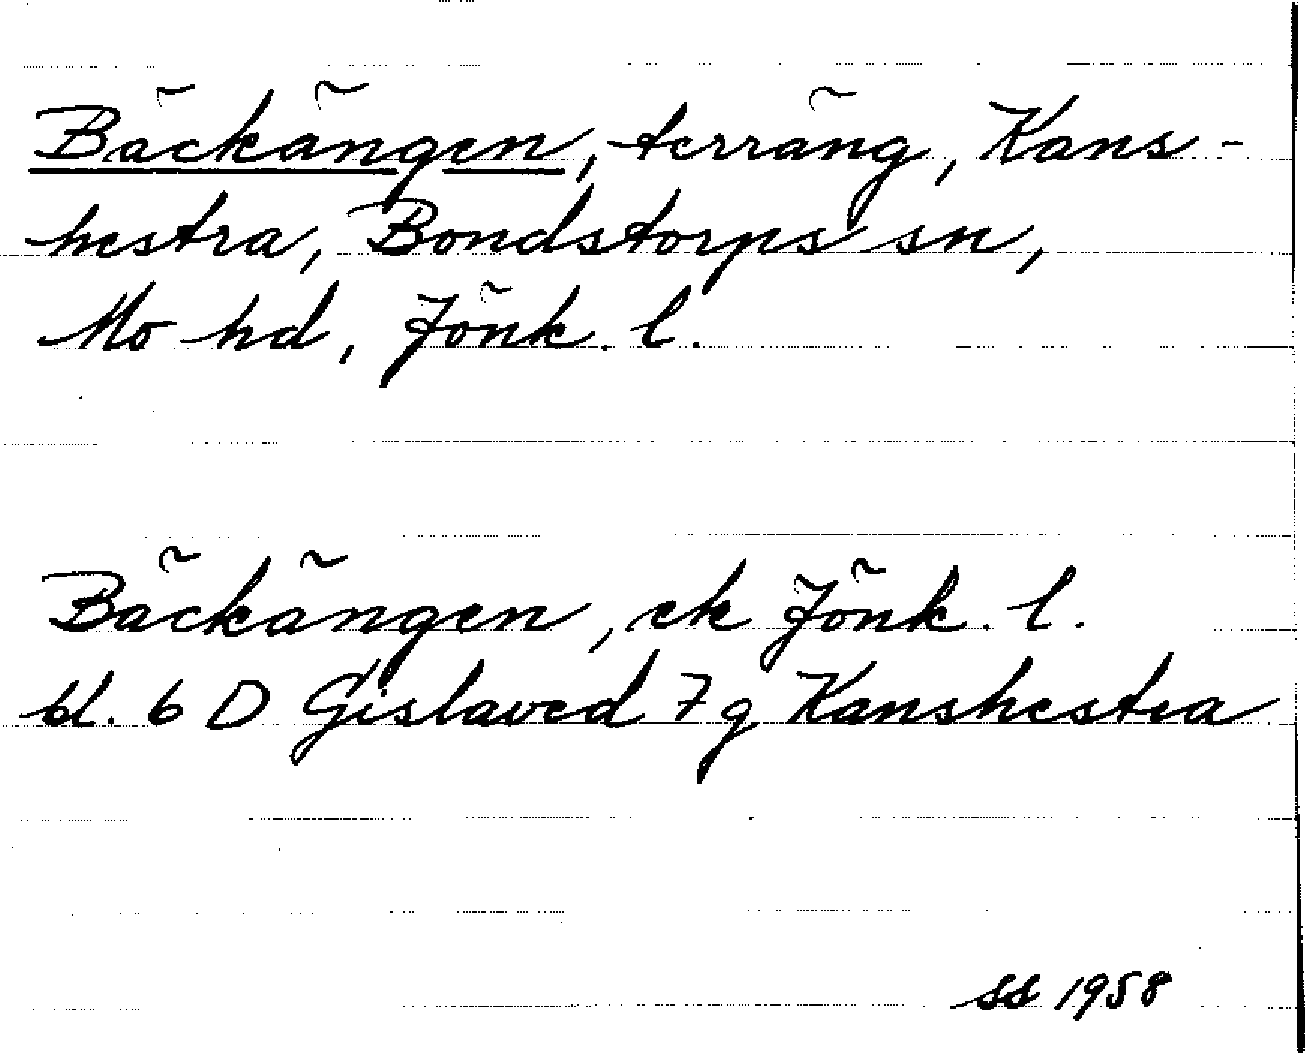 Bäckängen, terräng, Kans-
hestra, Bondstorps sn,
Mo hd, Jönk. l.
Bäckängen, ek Jönk. l.
bl. 6 D Gislaved 7 g Kanshestra
SS 1958